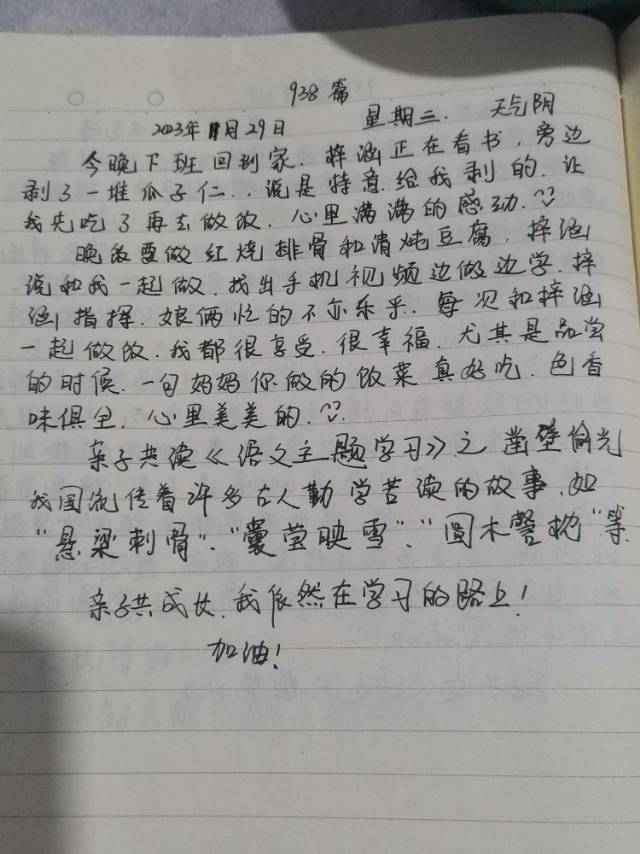 938篇
2023年11月29日 星期三. 天气阴
今晚下班回到家.梓涵正在看书,旁边
剥了一堆瓜子仁..说是特意给我剥的.让
我先吃了再去做饭.心里满满的感动.
晚饭要做红烧排骨和清炖豆腐.梓涵
说和我一起做.找出手机视频边做边学.梓
涵指挥.娘俩忙的不亦乐乎.每次和梓涵
一起做饭.我都很享受.很幸福.尤其是品尝
的时候.一句妈妈你做的饭菜真好吃.色香
味俱全.心里美美的.
亲子共读《语文主题学习》之凿壁偷光
我国流传着许多古人勤学苦读的故事.如
"悬梁刺骨"、"囊萤映雪"、"圆木警枕"等.
亲子共成长.我依然在学习的路上!
加油!